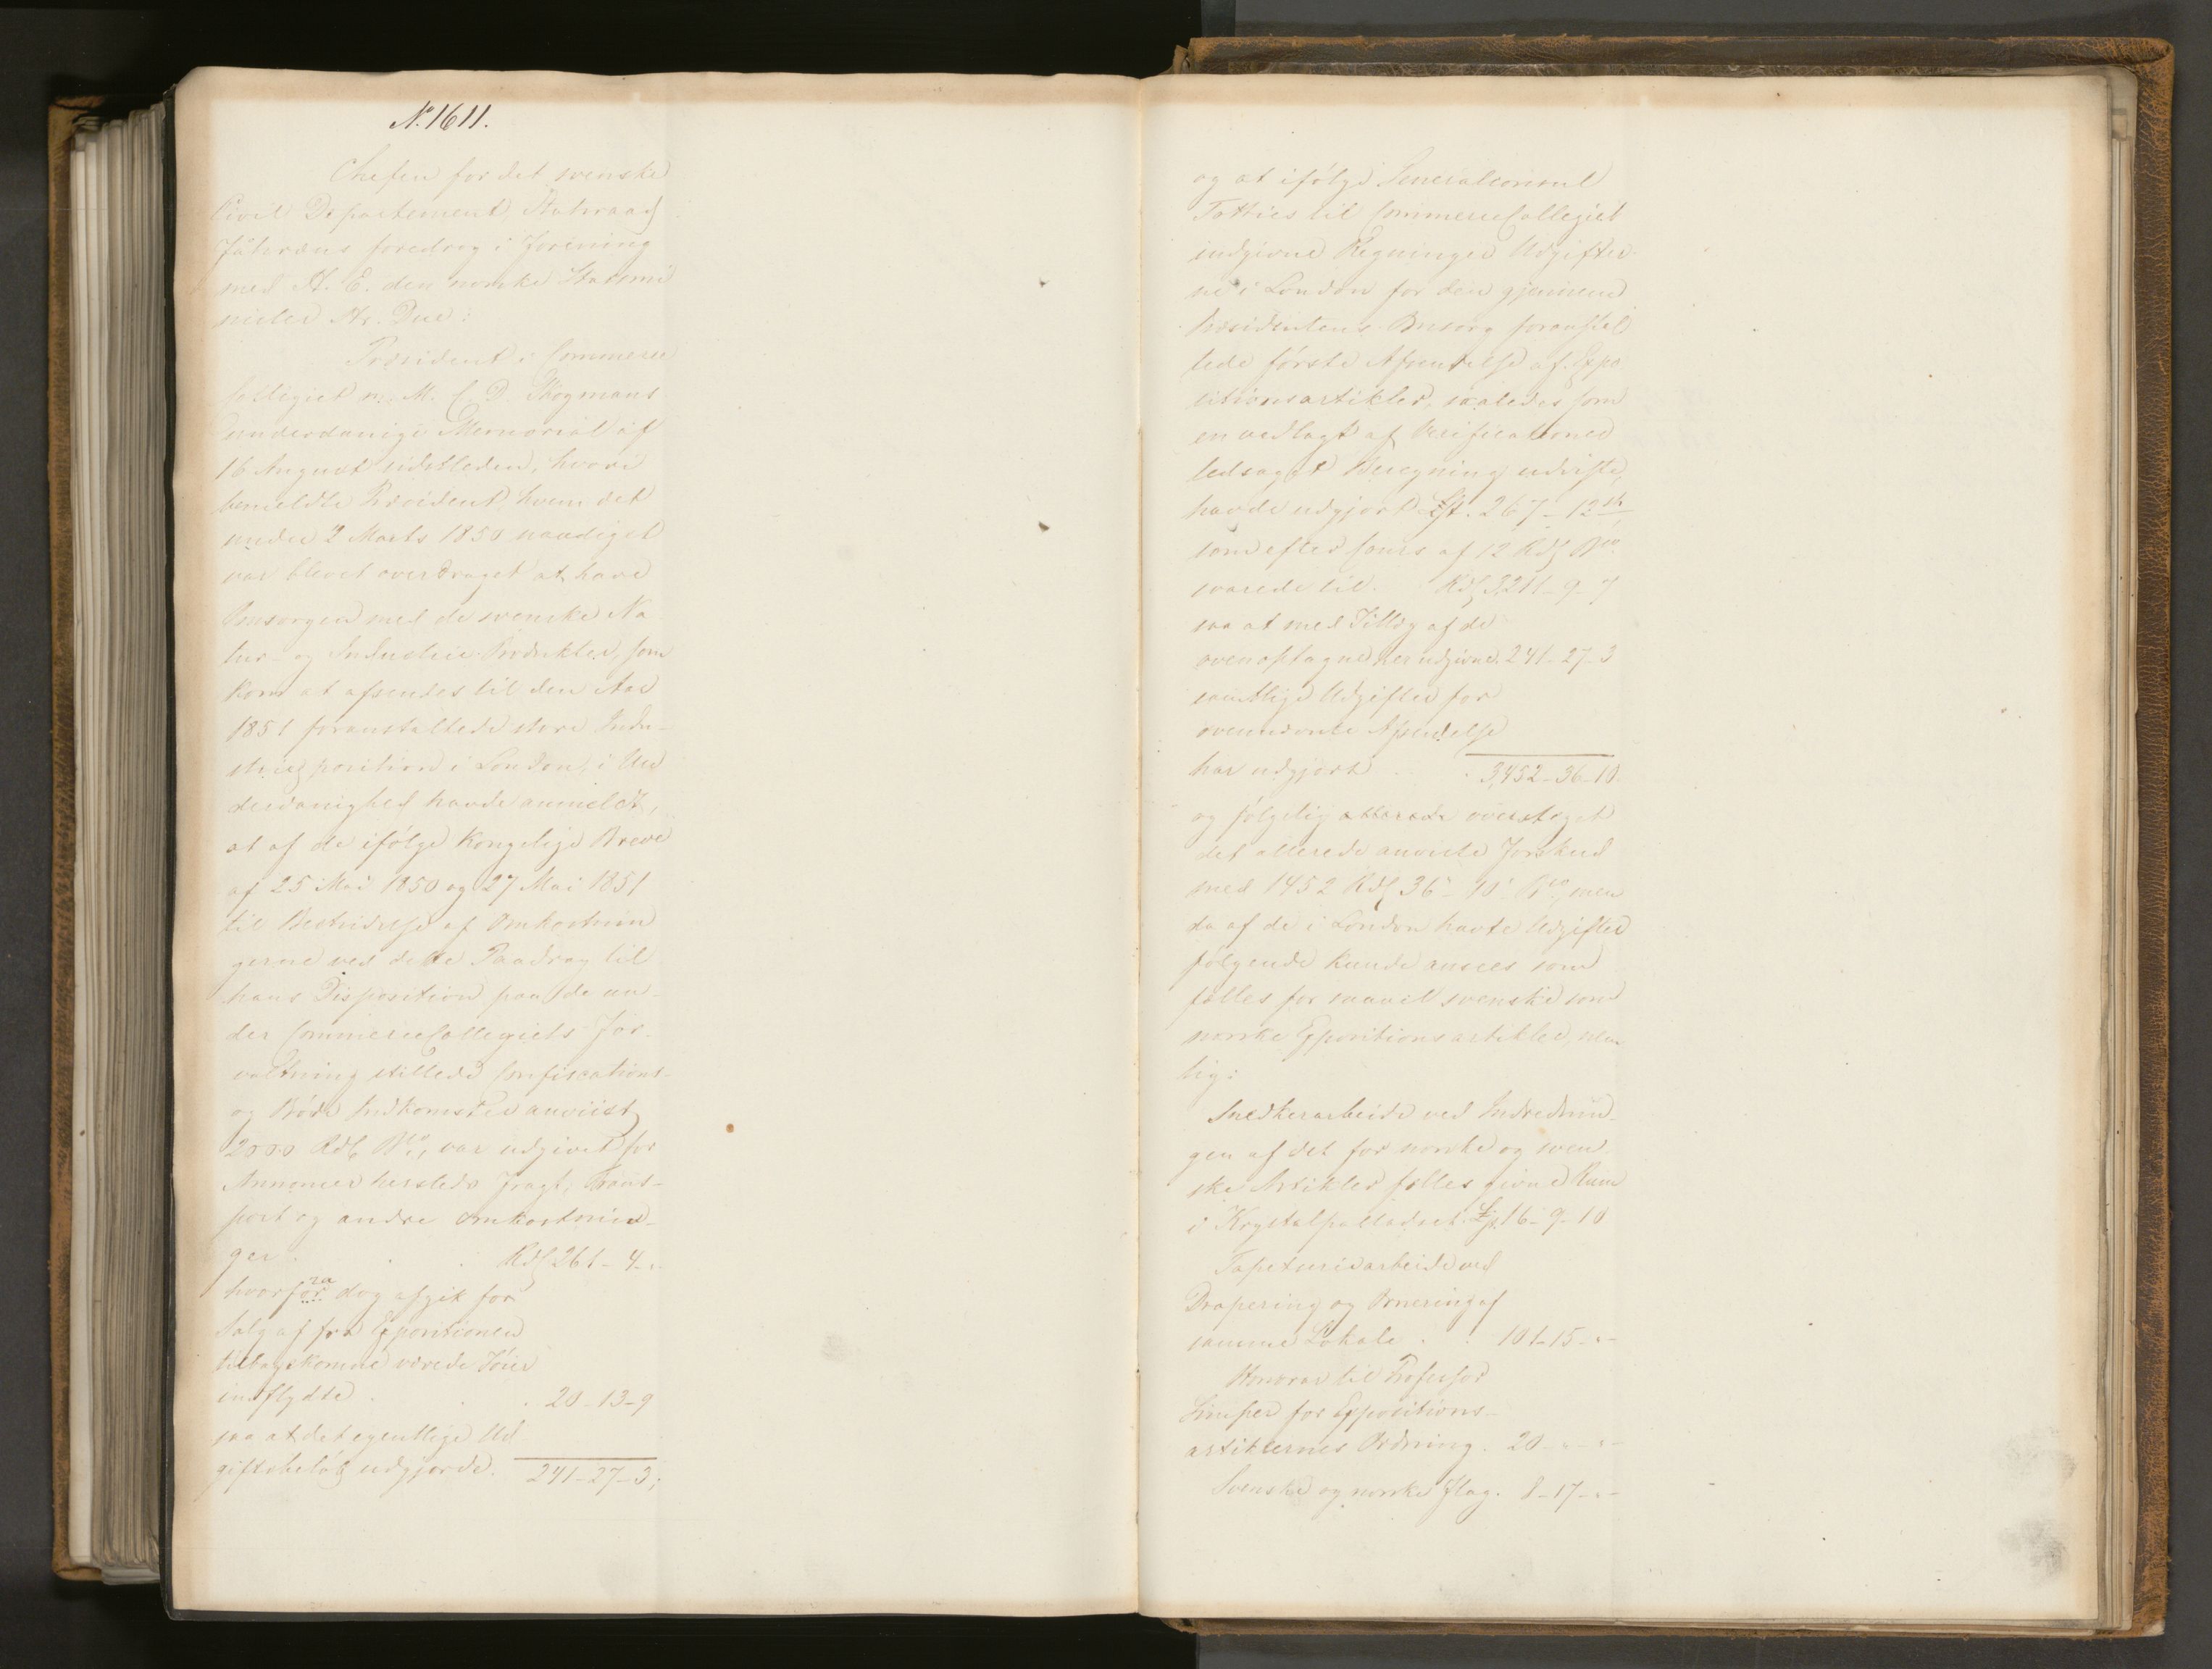 No. 1611.
Chefen for det svenske
Civil Departement, Statsraad
Fåhræus foredrog i Forening
med H. E. den norske Statsmi
nister Hr. Due:
Præsident i Commerce
Collegiet m. M. C. D. Skogmans
underdanige Memorial af
16 August sidstleden, hvori
bemeldte Præsident, hvem det
under 2 Marts 1850 naadigst
var blevet overdraget at have
Omsorgen med de svenske Na
tur- og Industrie Produkter, som
kom at afsendes til den Aar
1851 foranstaltede store Indu-
strieexposition i London, i Un
derdanighed havde anmeldt,
at af de ifølge Kongelige Breve
af 25 Mai 1850 og 27 Mai 1851
til Bestridelse af Omkostnin
gerne ved dette Paadrag til
hans Disposition paa de un-
der CommerceCollegiets For-
valtning stillede Confiscations-
og Bøde Indkomster anviist
2000 Rdl. Bco, var udgivet for
Annoncer hersteds Fragt, Trans-
port og andre Omkostnin-
ger . . . Rdl 261-4-"
hvorfra dog afgik for
Salg af fra Expositionen
tilbagekomne værede Töier
indflydte . . . 20-13-9
saa at det egentlige Ud
giftsbeløb udgjorde. 241-27-3;
og at ifølge Generalconsul
Totties til CommerceCollegiet
indgivne Regninger Udgifter-
ne i London for den gjennem
Præsidentens Omsorg foranstal
tede første Afsendelse af Expo
sitionsartikler, saaledes som
en vedlagt af Verificationer
ledsaget Beregning udviste,
havde udgjort L St. 267-12 sh
som efter Cours af 12 Rdl Bco
svarede til. Rdl 3,211-9-7
saa at med Tillæg af de
ovenoptagne her udgivne. 241-27-3
samtlige Udgifter for
ovennævnte Afsendelse
har udgjort . . . 3,452-36-10.
og følgelig allerede oversteget
det allerede anviste Forskud
med 1452 Rdl 36-10 Bco, men
da af de i London havte Udgifter
følgende kunde ansees som
fælles for saavel svenske som
norske Expositionsartikler, nem
lig:
Snedkerarbeide ved Indrednin-
gen af det for norske og sven
ske Artikler fælles givne Rum
i Krystalpalladset L St. 16-9-10
Tapetsererarbeide ved
Drapering og Orneringaf
samme Lokale . . 101-15-"-
Honorar til Professor
for Expositions-
artiklernes Ordning. 20-"-"-
Svenske og norske Flag. 8-17-"-